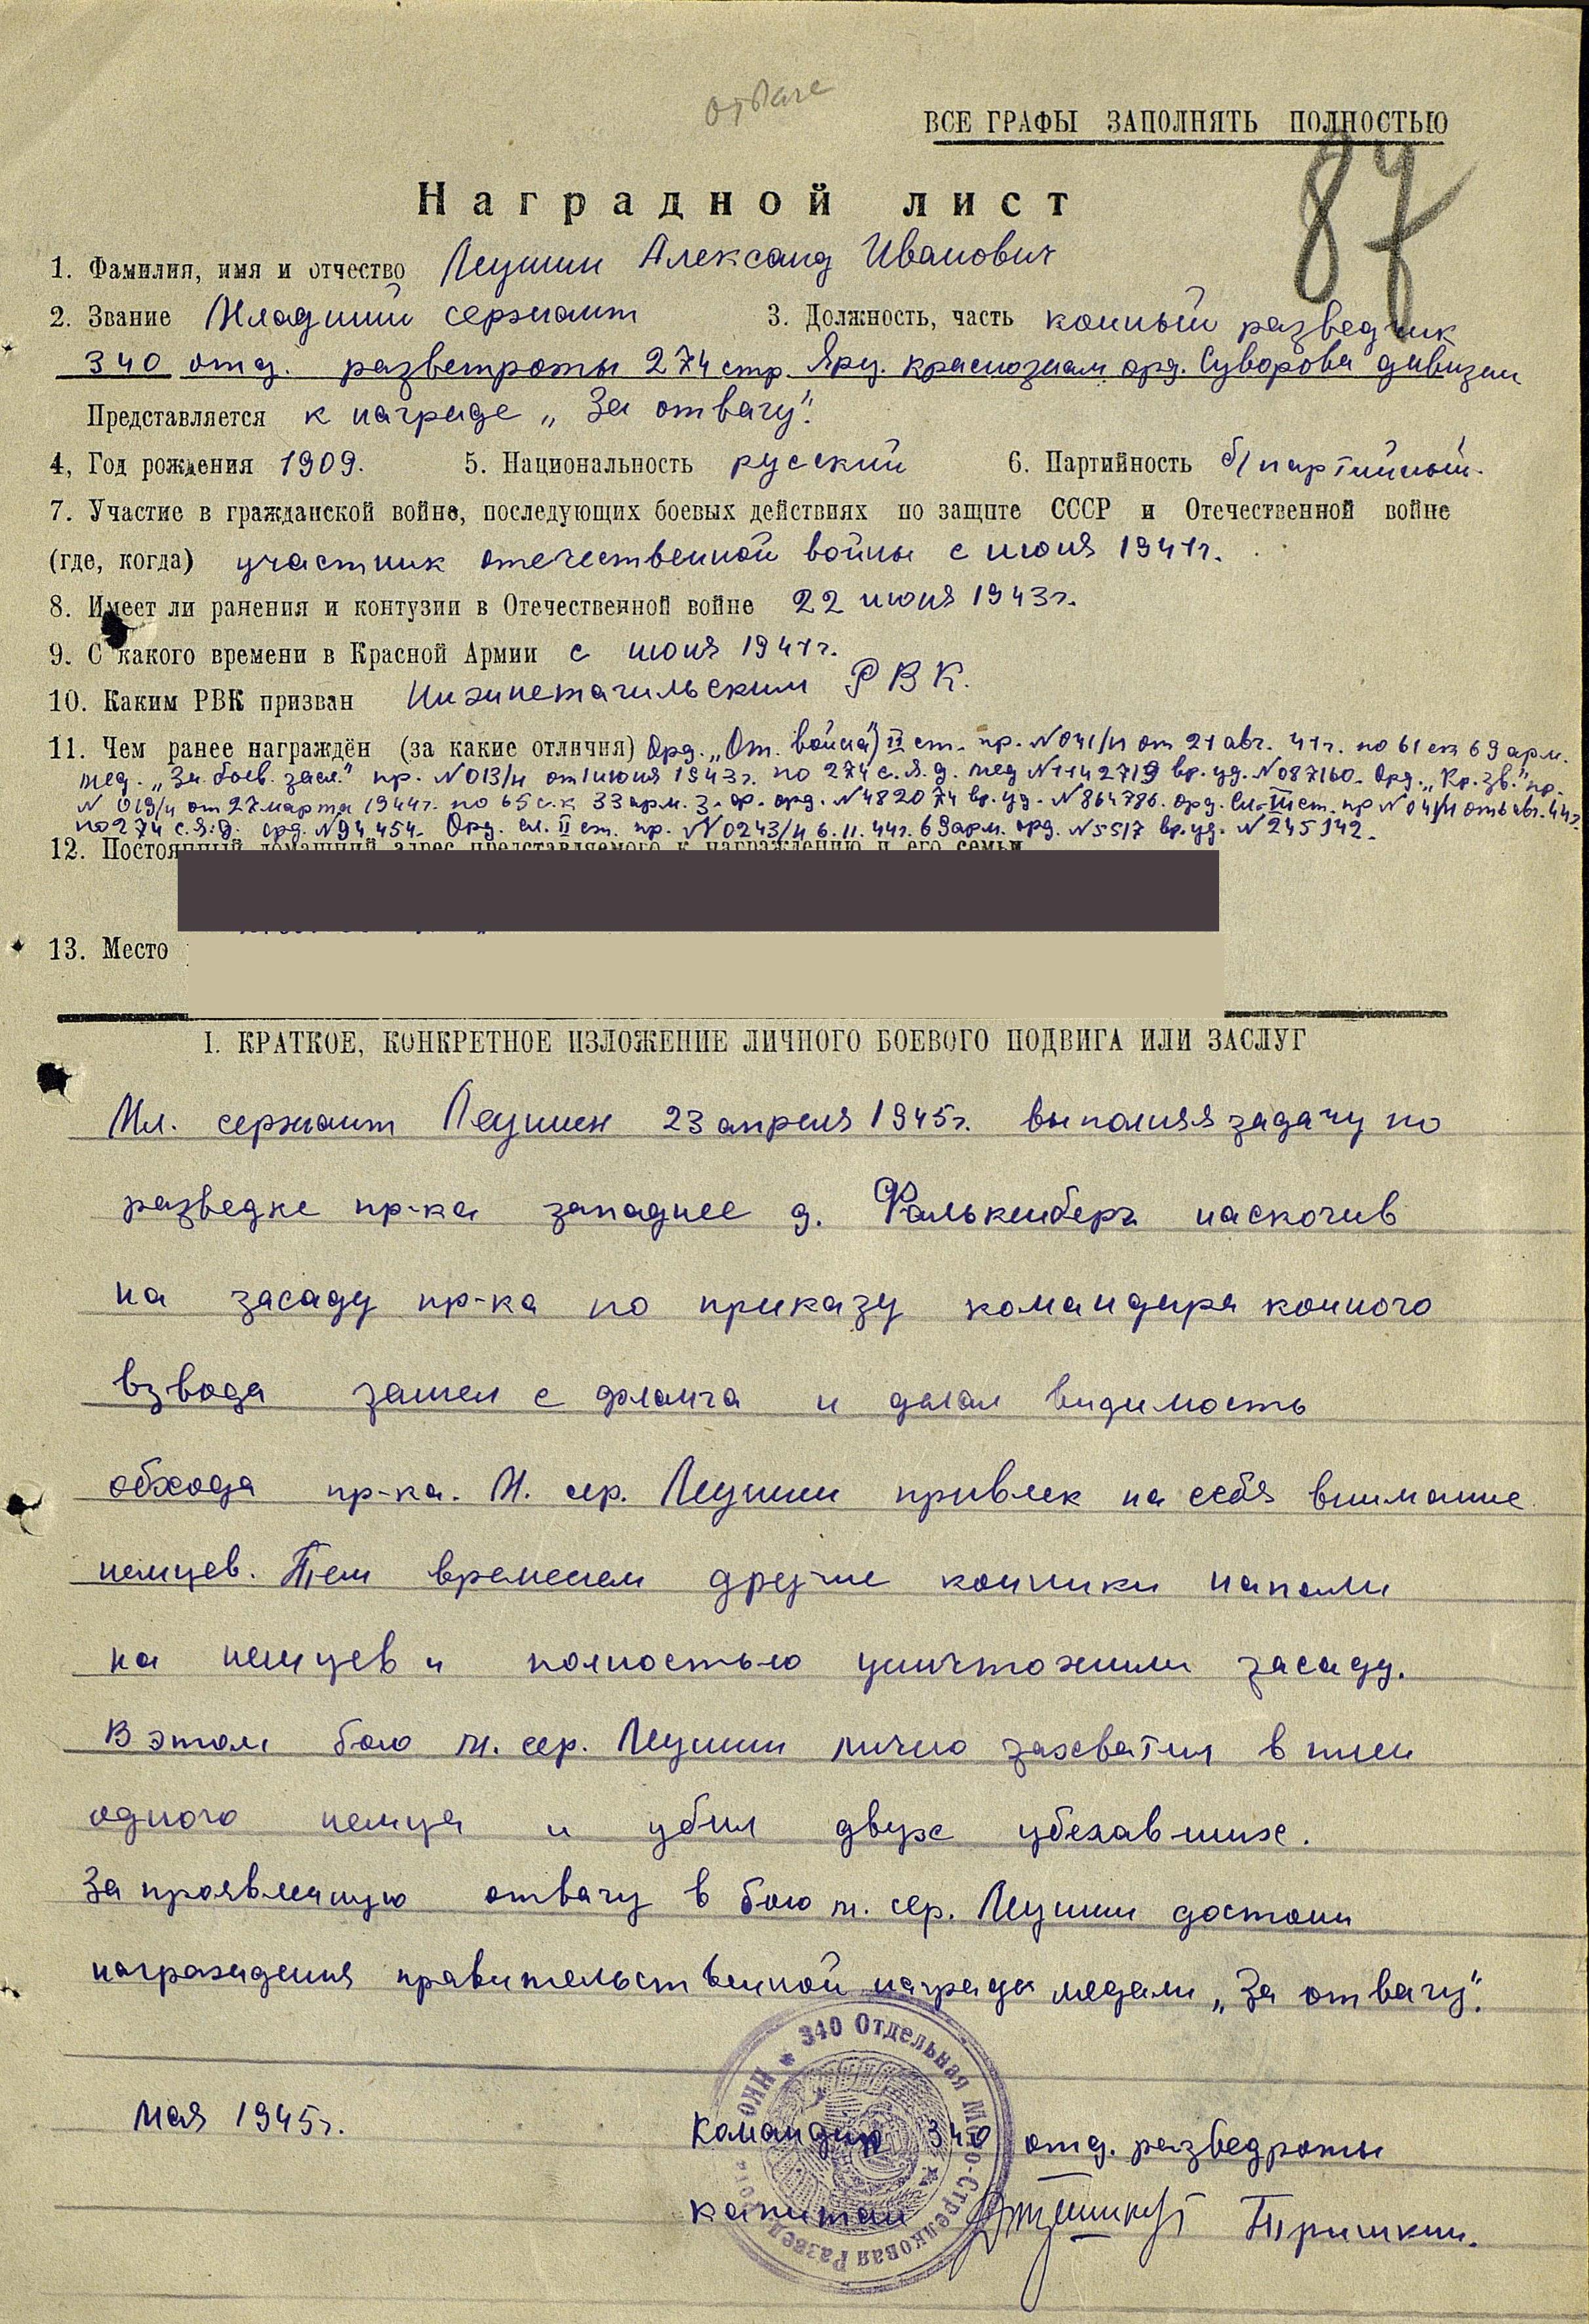 отваге
ВСЕ ГРАФЫ ЗАПОЛНЯТЬ ПОЛНОСТЬЮ
87
Наградной лист
1. Фамилия, имя и отчество Леушин Александ Иванович
2. Звание Младший сержант 3. Должность, часть конный разведчик
340 отд. разветроты 274 стр. Яру. краснознам орд. Суворова дивизии
Представляется к награде „За отвагу".
4, Год рождения 1909. 5. Национальность русский 6. Партийность б/партийный.
7. Участие в гражданской войне, последующих боевых действиях по защите СССР и Отечественной войне
(где, когда) участник отечественной войны с июня 1941г.
8. Имеет ли ранения и контузии в Отечественной войне 22 июня 1943г.
9. С какого времени в Красной Армии с июня 1941г.
10. Каким РВК призван Нижнетагильским РВК.
11. Чем ранее награждён (за какие отличия) Орд. „От. война") II ст. пр. N041/н от 21 авг. 41г. по 61 ск 69 арм.
мед. „За боев. засл." пр. N013/н от 1 июня 1943г. по 274 с.Я.д. мед N1142719 вр. уд. N087160. Орд. „Кр. Зв." пр.
N 019/н от 27 марта 1944г. по 65 с.к 33 арм. З. ф. орд. N482074 вр. уд. N864786. орд. сл. III ст. пр N041/н от 6 авг. 44г.
по 274 с.Я.д. орд. N94454. Орд. сл. II ст. пр. N0243/н 6.11.44г. 69 арм. орд. N5517 вр. уд. N245142.
12. Постоянный домашний адрес представляемого к награждению и его семьи
13. Место
I. КРАТКОЕ, КОНКРЕТНОЕ ИЗЛОЖЕНИЕ ЛИЧНОГО БОЕВОГО ПОДВИГА ИЛИ ЗАСЛУГ
Мл. сержант Леушин 23 апреля 1945г. выполняя задачу по
разведке пр-ка западнее д. Фалькенберг наскочив
на засаду пр-ка по приказу командира конного
взвода зашел с фланга и делал видимость
обхода пр-ка. М. сер. Леушин привлек на себя внимание
немцев. Тем временем другие конники напали
на немцев и полностью уничтожили засаду.
В этом бою м. сер. Леушин лично захватил в плен
одного немца и убил двух убежавших.
За проявленную отвагу в бою м. сер. Леушин достоин
награждения правительственной награды медали „За отвагу".
340 Отдельная Мото-Стрелковая Развед. рота НКО
мая 1945г.
Командир 340 отд. разведроты
капитан Тришкин.